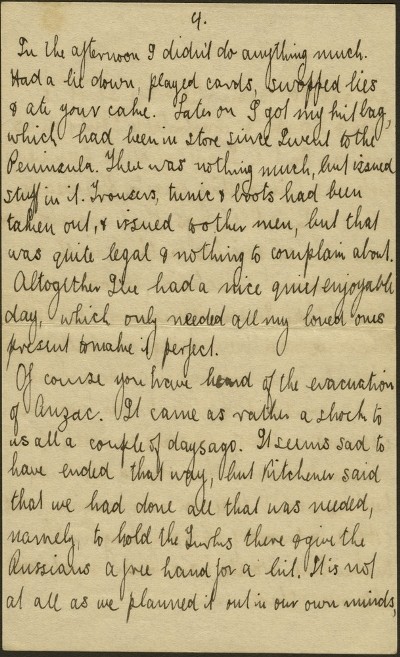 4.
In the afternoon I didn't do anything much.
Had a lie down, played cards, swopped lies
& ate your cake. Later on I got my kit bag,
which had been in store since I went to the
Peninsula. There was nothing much, but issued
stuff in it. Trousers, tunic & boots had been
taken out, & issued to other men, but that
was quite legal & nothing to complain about.
Altogether I've had a nice quiet enjoyable
day, which only needed all my loved ones
present to make it perfect.
Of course you have heard of the evacuation
of Anzac. It came as rather a shock to
us all a couple of days ago. It seems sad to
have ended that way, but Kitchener said
that we had done all that was needed,
namely, to hold the Turks there & give the
Russians a free hand for a bit. It is not
at all as we planned it out in our own minds,